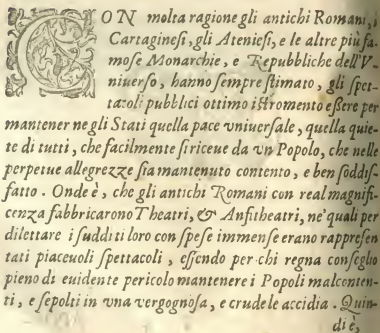 CON molta ragione gli antichi Romani, i
Cartaginesi, gli Ateniesi, e le altre più fa-
mose Monarchie, e Republiche dell'V-
niuerso, hanno sempre stimato, gli spet-
tacoli pubblici ottimo istromento essere per
mantener ne gli Stati quella pace vniuersale, quella quie-
te di tutti, che facilmente si riceue da vn Popolo, che nelle
perpetue allegrezze sia mantenuto contento, e ben soddis-
fatto. Onde è, che gli antichi Romani con real magnifi-
cenza fabbricarono Theatri, & Anfitheatri, ne' quali per
dilettare i sudditi loro con spese immense erano rappresen
tati piaceuoli spettacoli, essendo per chi regna conseglio
pieno di euidente pericolo mantenere i Popoli malconten-
ti, e sepolti in vna vergognosa, e crudele accidia. Quin-
di è,